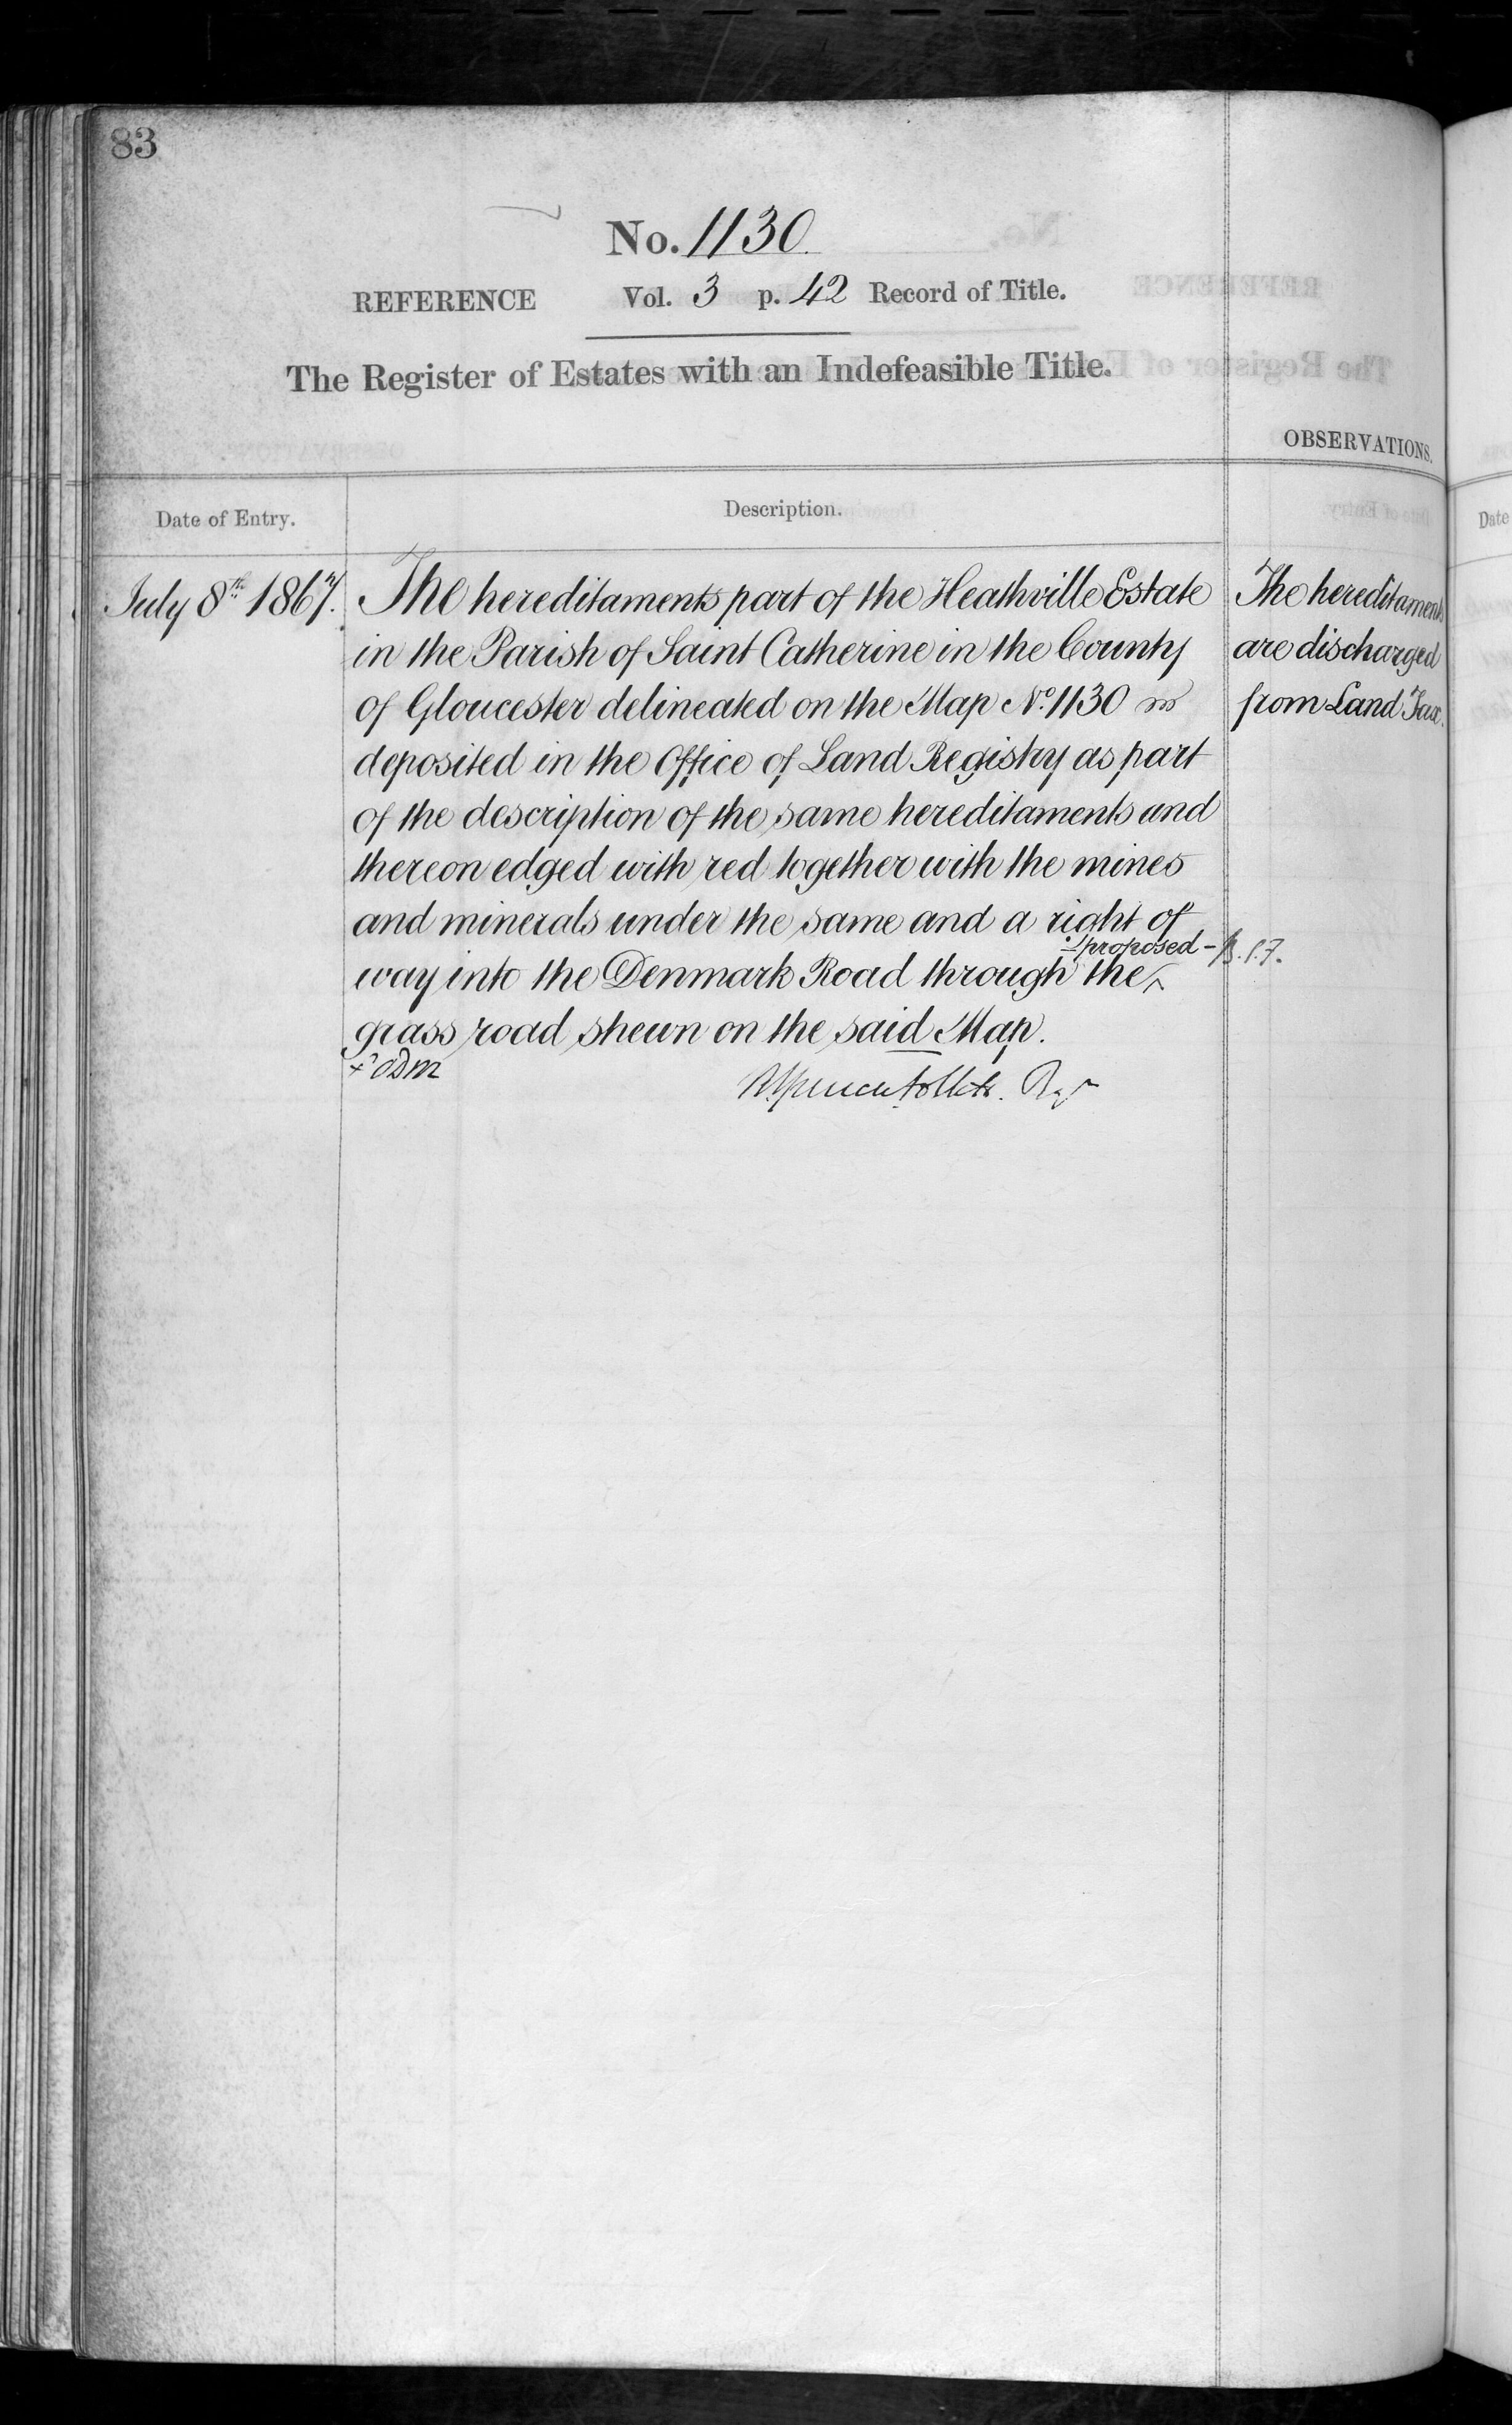 83
No. 1130.
REFERENCE Vol. 3 p. 42 Record of Title.
The Register of Estates with an Indefeasible Title.
OBSERVATIONS.
Date of Entry.
Description.
July 8th 1867.
The hereditaments part of the Heathville Estate
in the Parish of Saint Catherine in the County
of Gloucester delineated on the Map No. 1130
deposited in the Office of Land Registry as part
of the description of the same hereditaments and
thereon edged with red together with the mines
and minerals under the same and a right of
proposed - B.S.F.
way into the Denmark Road through the ^
grass road shewn on the said Map.
Rgr
The hereditaments
are discharged
from Land Tax.
Date